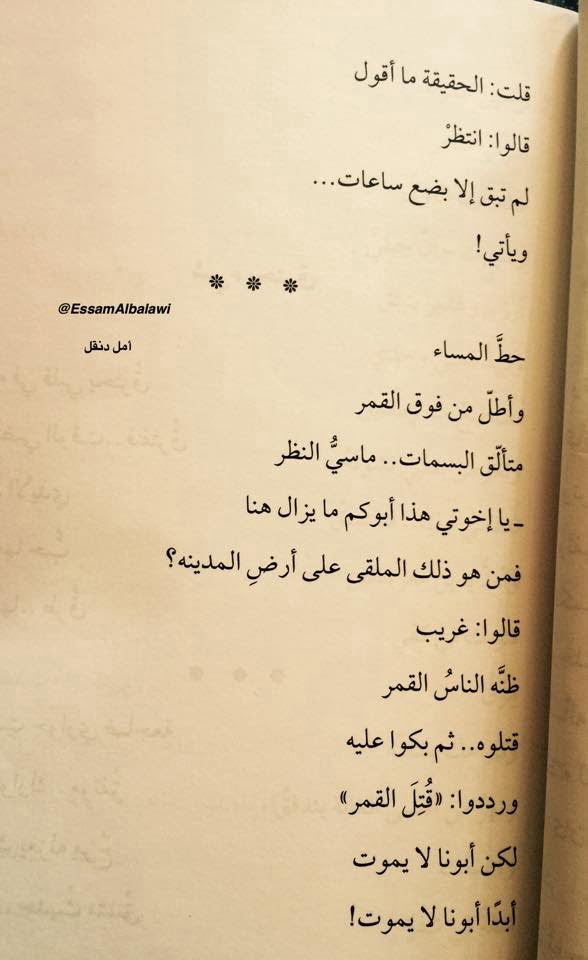 قلت: الحقيقة ما أقول
قالوا: انتظرْ
لم تبق إلا بضع ساعات...
ويأتي!
* * *
@EssamAlbalawi
أمل دنقل
حطَّ المساء
وأطلّ من فوق القمر
متألّق البسمات.. ماسيُّ النظر
ـ يا إخوتي هذا أبوكم ما يزال هنا
فمن هو ذلك الملقى على أرضِ المدينه؟
قالوا: غريب
ظنَّه الناسُ القمر
قتلوه.. ثم بكوا عليه
ورددوا: «قُتِلَ القمر»
لكن أبونا لا يموت
أبدًا أبونا لا يموت!